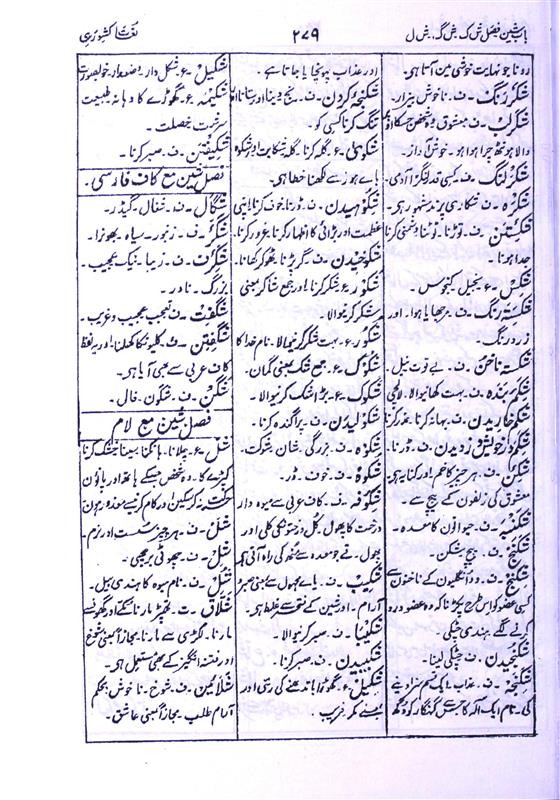 باب شین فصل ش ک۔ ش گ۔ ش ل
۲۷۹
لغات کشوری
رونا جو نہایت خوشی مین آتا ہی۔
شکر رنگ۔ ف۔ ناخوش بیزار۔
شکر لب۔ ف۔ معشوق وہ شخص جسکا اوپر
والا ہونٹھ چرا ہوا ہو۔ خوش آواز۔
شکر لنگ۔ ف۔ کسی قدر لنگڑا آدمی۔
شکرہ۔ ف۔ شکاری پرند مشہور ہی۔
شکستن۔ ف۔ توڑنا۔ ٹوٹنا
جدا ہونا۔
شکس۔ ع۔ بخیل کنجوس۔
شکستہ رنگ۔ ف۔ مرجھایا ہوا۔ اور
زرد رنگ۔
شکستہ ناخن۔ ف۔ بے قوت
شکم بندہ۔ ف۔ بہت کھانیوالا۔ لالچی
ف۔ بہانہ کرنا۔
ف۔ ڈرنا۔
شکن۔ ف۔ ہر چیز کا خم
معشوق کی زلفون کے پیچ سے۔
شکنبہ۔ ف۔ حیوانون کا معدہ۔
شکنج۔ ف۔ پیچ شکن۔
شکنج۔ ف۔ دو اونگلیون کے ناخون سے
کسی عضو کو اس طرح پکڑنا کہ وہ عضو درد
کرنے لگے ہندی چٹکی۔
شکنجیدن۔ ف۔ چٹکی لینا۔
شکنجہ۔ ف۔ عذاب۔ ایک قسم سزا دینے
کی۔ نام ایک آلہ کا جسمین گنہگار کو دکھ
اور عذاب پہونچایا جاتا ہے۔
شکنجہ کردن۔ ف۔ رنج دینا اور ستانا اور
تنگ کرنا کسی کو۔
شکوہ۔ ع۔ گلہ کرنا۔ گلہ شکایت
ہاے ہوز سے لکھنا خطا ہی۔
شکوہیدن۔ ف۔ ڈرنا۔ خوف کرنا اپنی
عظمت اور بڑائی کا اظہار کرنا۔ غرور کرنا۔
ف۔ گر پڑنا۔ ٹھوکر کھانا۔
شکور۔ ع۔ شکر کرنا۔ اور جمع شاکر بمعنی
شکر کرنیوالا۔
شکور۔ ع۔ بہت شکر کرنیوالا۔ نام خدا کا
شکوک۔ ع۔ جمع شک بمعنی گمان۔
شکوک۔ ع۔ بڑا شک کرنیوالا۔
ف۔ پراگندہ کرنا۔
شکوہ۔ ف۔ بزرگی۔ شان شوکت۔
شکوہ۔ ف۔ خوف۔ ڈر۔
شکوفہ۔ ف۔ کاف عربی سے میوہ دار
درخت کا پھول۔ گل درختونکی کلی اور
پھول۔ قے جو معدہ سے منھ کی راہ آتی ہی
شکیب۔ ف۔ یاے مجہول سے بمعنی صبر
آرام۔ اور شین کے فتحہ سے غلط ہی۔
شکیبا۔ ف۔ صبر کرنیوالا۔
شکیبیدن۔ ف۔ صبر کرنا۔
شکیل۔ ع۔ گھوڑا باندھنے کی رسی اور
بمعنے مکر فریب۔
شکیل۔ ع۔ شکل دار۔ وضعدار خوبصورت
شکیمہ۔ ع۔ گھوڑے کا دہانہ طبیعت
سرشت خصلت۔
شکیفتن۔ ف۔ صبر کرنا۔
فصل شین مع کاف فارسی۔
شگال۔ ف۔ شغال گیدڑ۔
ف۔ زنبور۔ سیاہ بھونرا۔
شگرف۔ ف۔ زیبا۔ نیک عجیب۔
بزرگ۔ نادر۔
شگفت۔ ف۔ تعجب عجیب وغریب۔
شگفتن۔ ف۔ کلیونکا کھلنا۔ اور یہ لفظ
کاف عربی سے بھی آیا ہی۔
شگن۔ ف۔ شگون۔ فال۔
فصل شین مع لام
شل۔ ع۔ چلانا۔ ہانکنا۔ سینا خشک کرنا
کپڑے کا۔ وہ شخص جسکے ہاتھ اور پاؤن
حرکت نہ کر سکین اور کام کرنے سے معذور ہون
شل۔ ف۔ ہر چیز سست اور نرم۔
شل۔ ف۔ چھوٹی برچھی۔
شل۔ ف۔ نام میوہ کا ہندی بیل۔
شلاق۔ ت۔ تھپڑ مارنا۔
مارنا۔ لکڑی سے مارنا۔ مجازاً بمعنی شوخ
اور فتنہ انگیز کے بھی مستعمل ہی۔
شلائین۔ ف۔ شوخ۔ ناخوش محکم
آرام طلب۔ مجازاً بمعنی عاشق۔